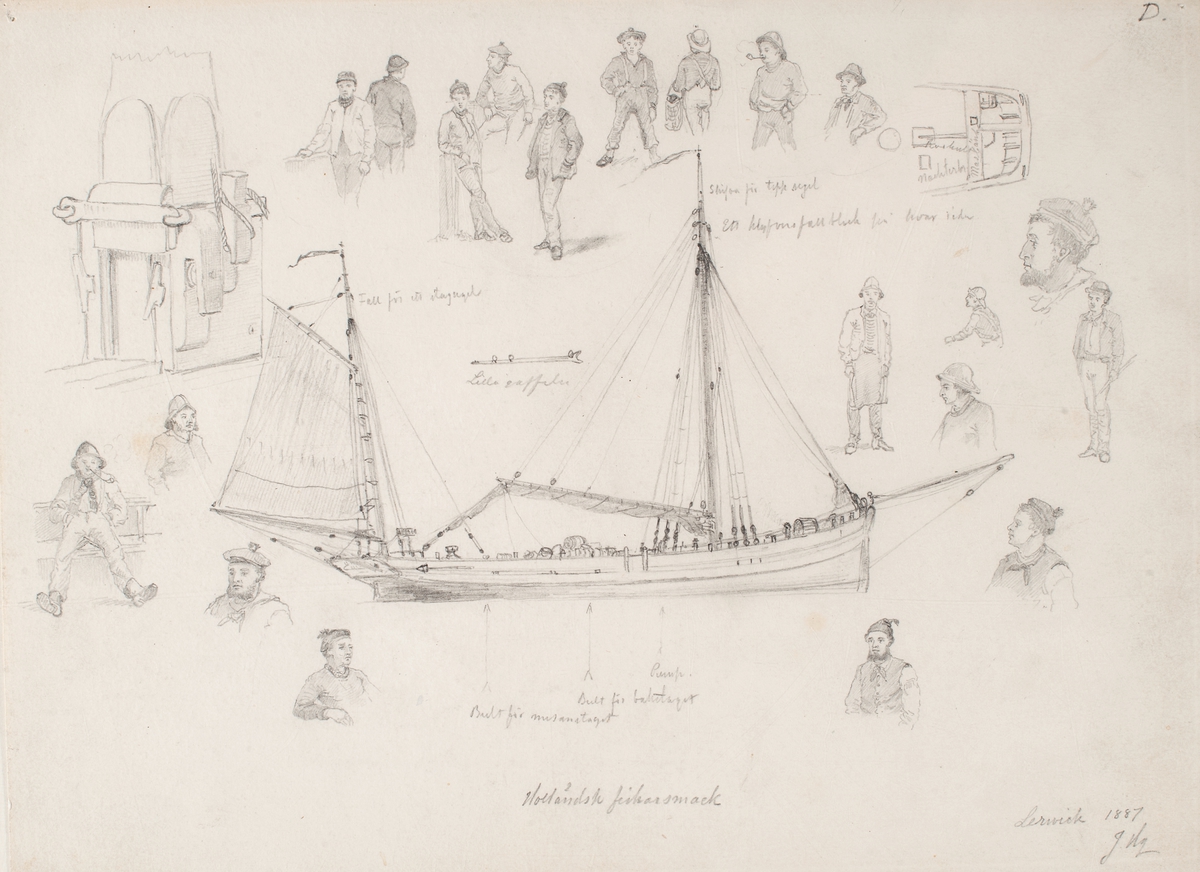 D.
för topp segel
Ett klyfvarefallblock på hvar sida
Fall för ett stagsegel
Lilla gaffeln
Pump.
Bult för backstaget
Bult för mesanstaget
Holländsk fiskarsmack
Lerwick 1887
J Hg